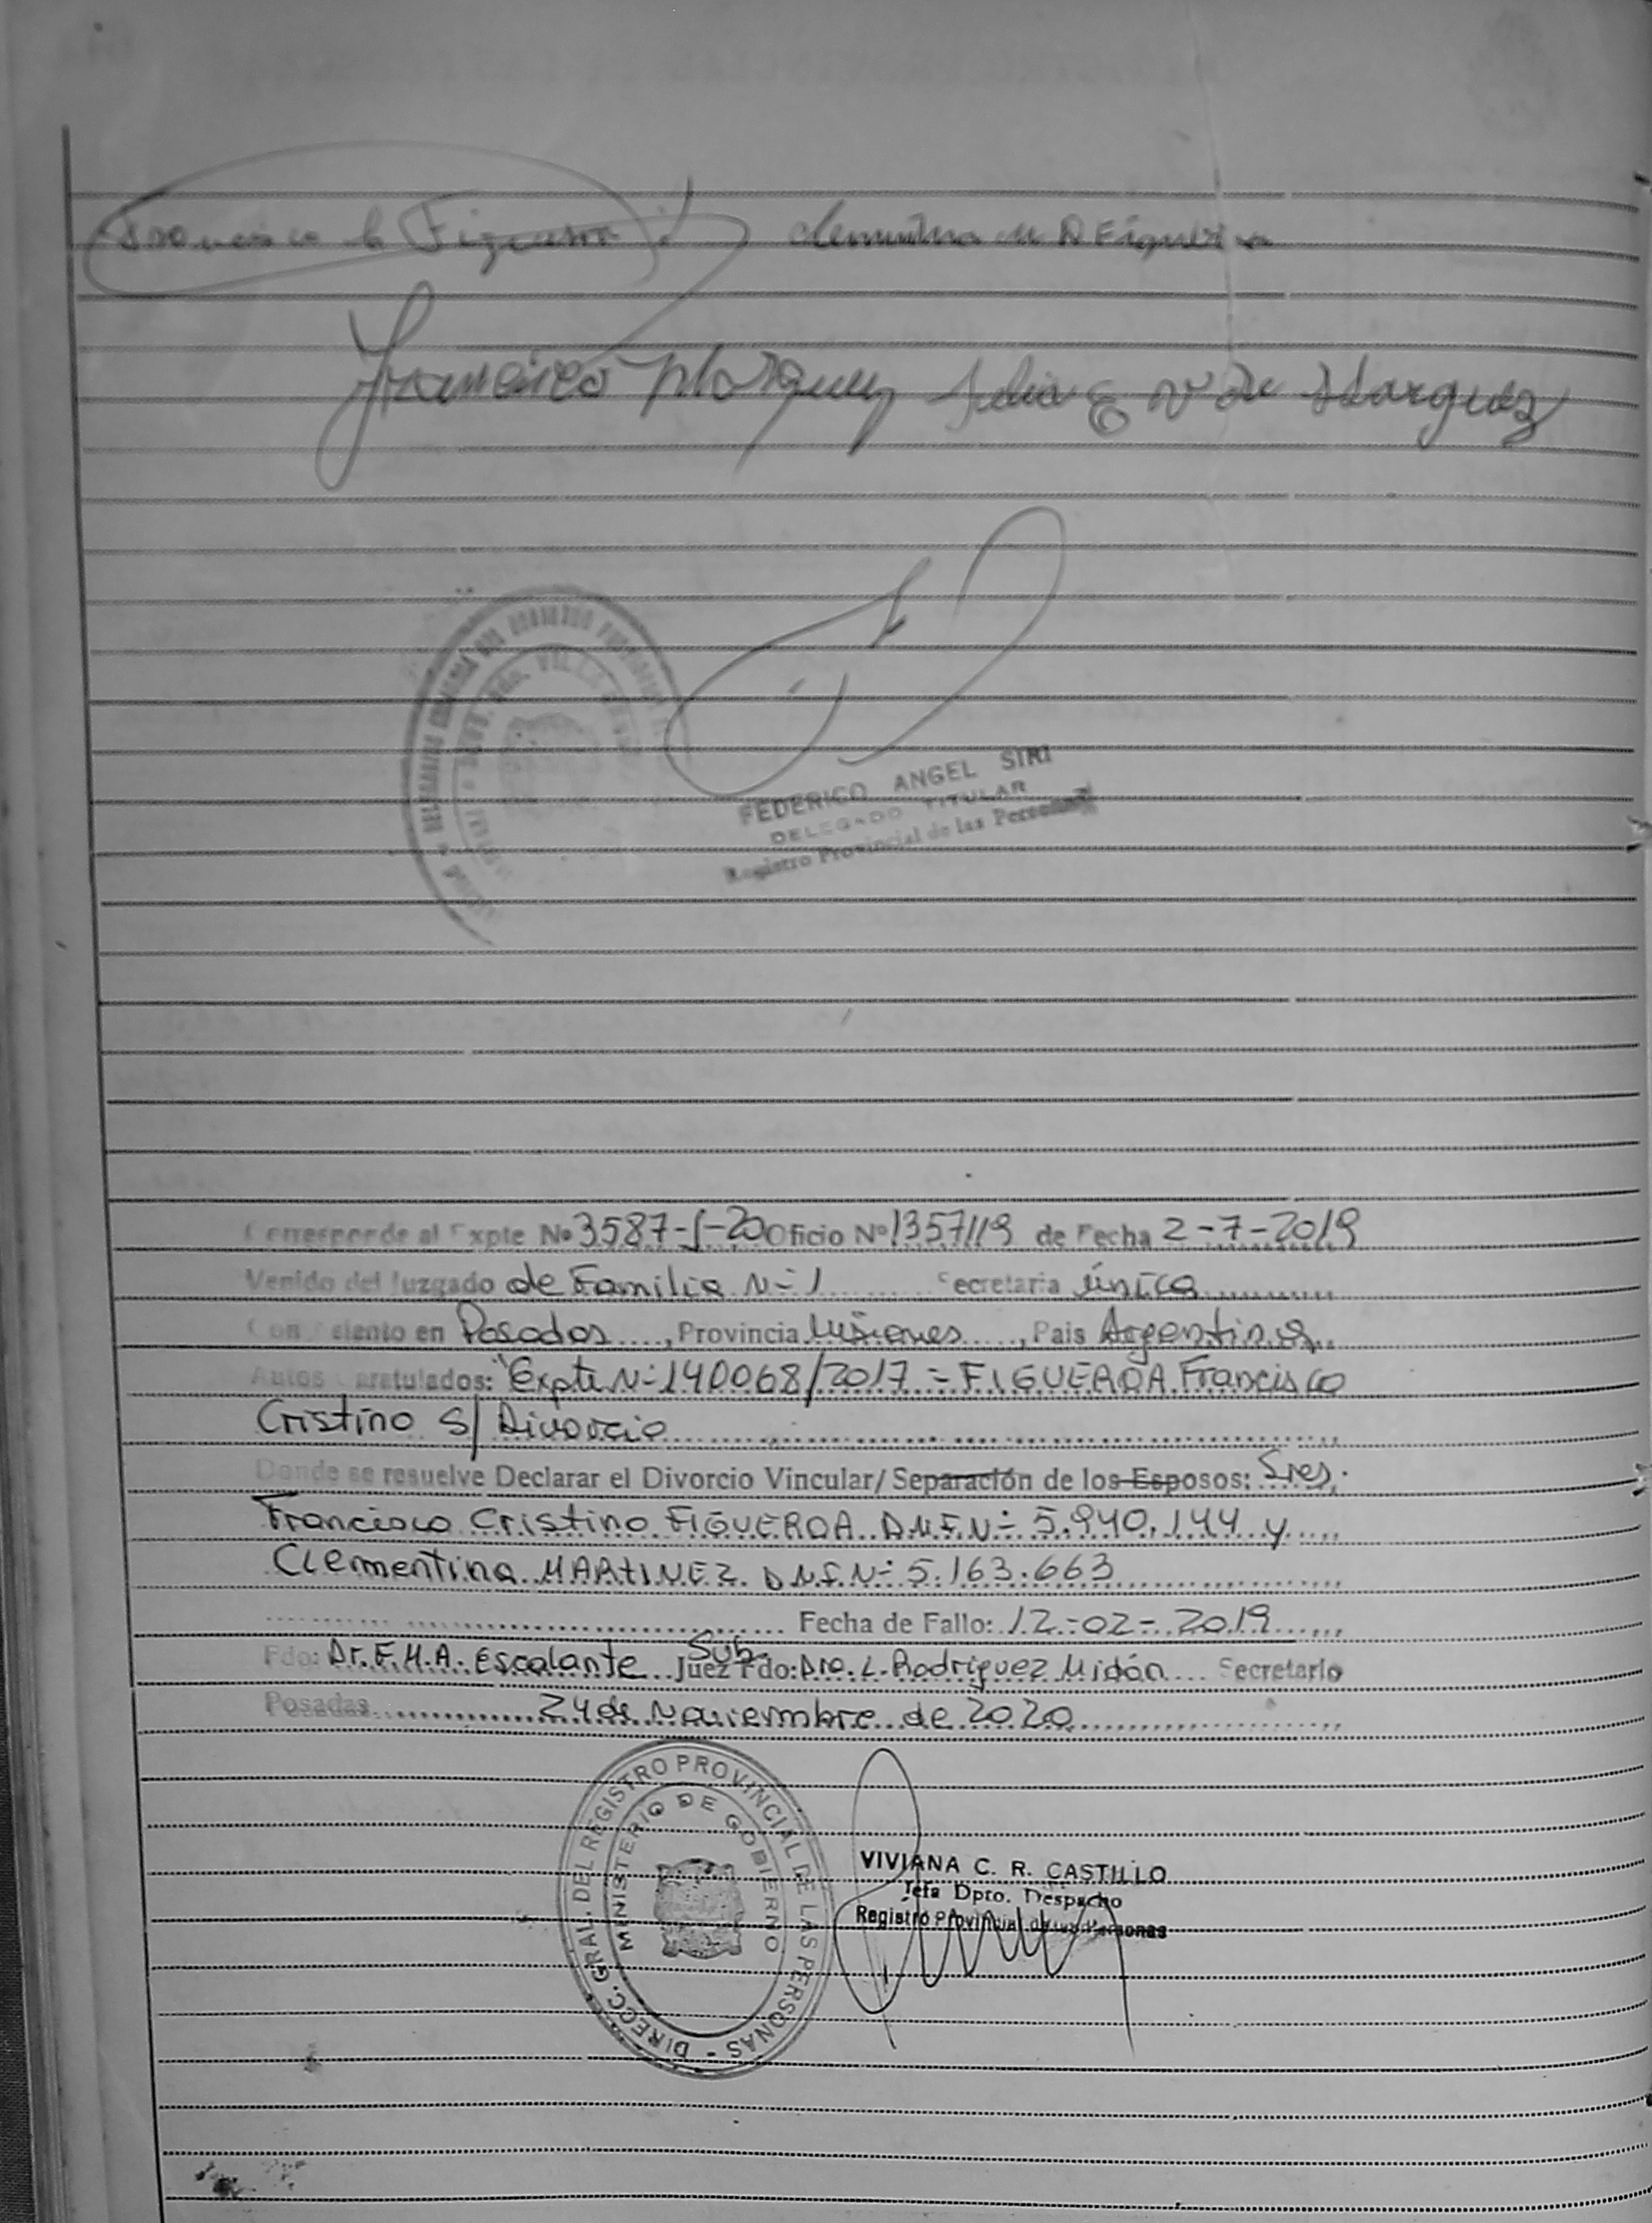 Francisco C Figueroa Clementina M D Figueroa
Francisco Marquez Delia E V de Marquez
FEDERICO ANGEL SIRI
DELEGADO TITULAR
Registro Provincial de las Personas
Corresponde al Expte Nº 3587-J-20 Oficio Nº 1357/19 de Fecha 2-7-2019
Venido del Juzgado de Familia Nº 1 Secretaria única
Con asiento en Posadas, Provincia Misiones, Pais Argentina
Autos Caratulados: "Expte Nº 140068/2017 = FIGUEROA Francisco
Cristino S/ Divorcio
Donde se resuelve Declarar el Divorcio Vincular/ Separación de los Esposos: Sres.
Francisco Cristino FIGUEROA D.N.I. Nº 5.940.144 y
Clementina MARTINEZ D.N.I. Nº 5.163.663
Fecha de Fallo: 12-02-2019
Fdo: Dr. F.H.A. Escalante Juez Sub Fdo: Dra. L. Rodriguez Midón Secretario
Posadas 24 de Noviembre de 2020
DIRECC. GRAL. DEL REGISTRO PROVINCIAL DE LAS PERSONAS -
MINISTERIO DE GOBIERNO
VIVIANA C. R. CASTILLO
Jefa Dpto. Despacho
Registro Provincial de las Personas